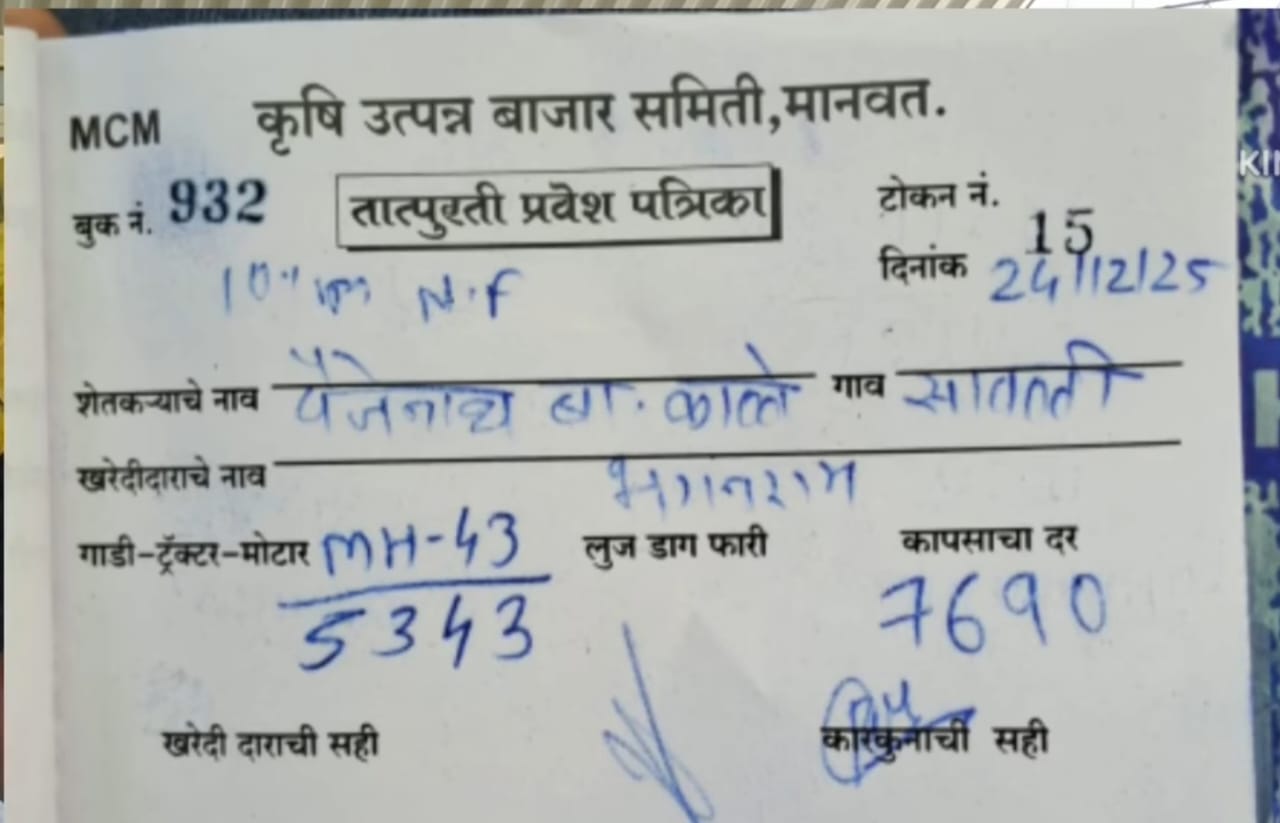 MCM कृषि उत्पन्न बाजार समिती,मानवत.
बुक नं. 932 तात्पुरती प्रवेश पत्रिका टोकन नं. 15
दिनांक 24/12/25
N.F
शेतकऱ्याचे नाव वैजेनाथ बा. काळे गाव
खरेदीदाराचे नाव
गाडी-ट्रॅक्टर-मोटार MH-43 लुज डाग फारी कापसाचा दर
5343 7690
खरेदी दाराची सही कारकुनाची सही